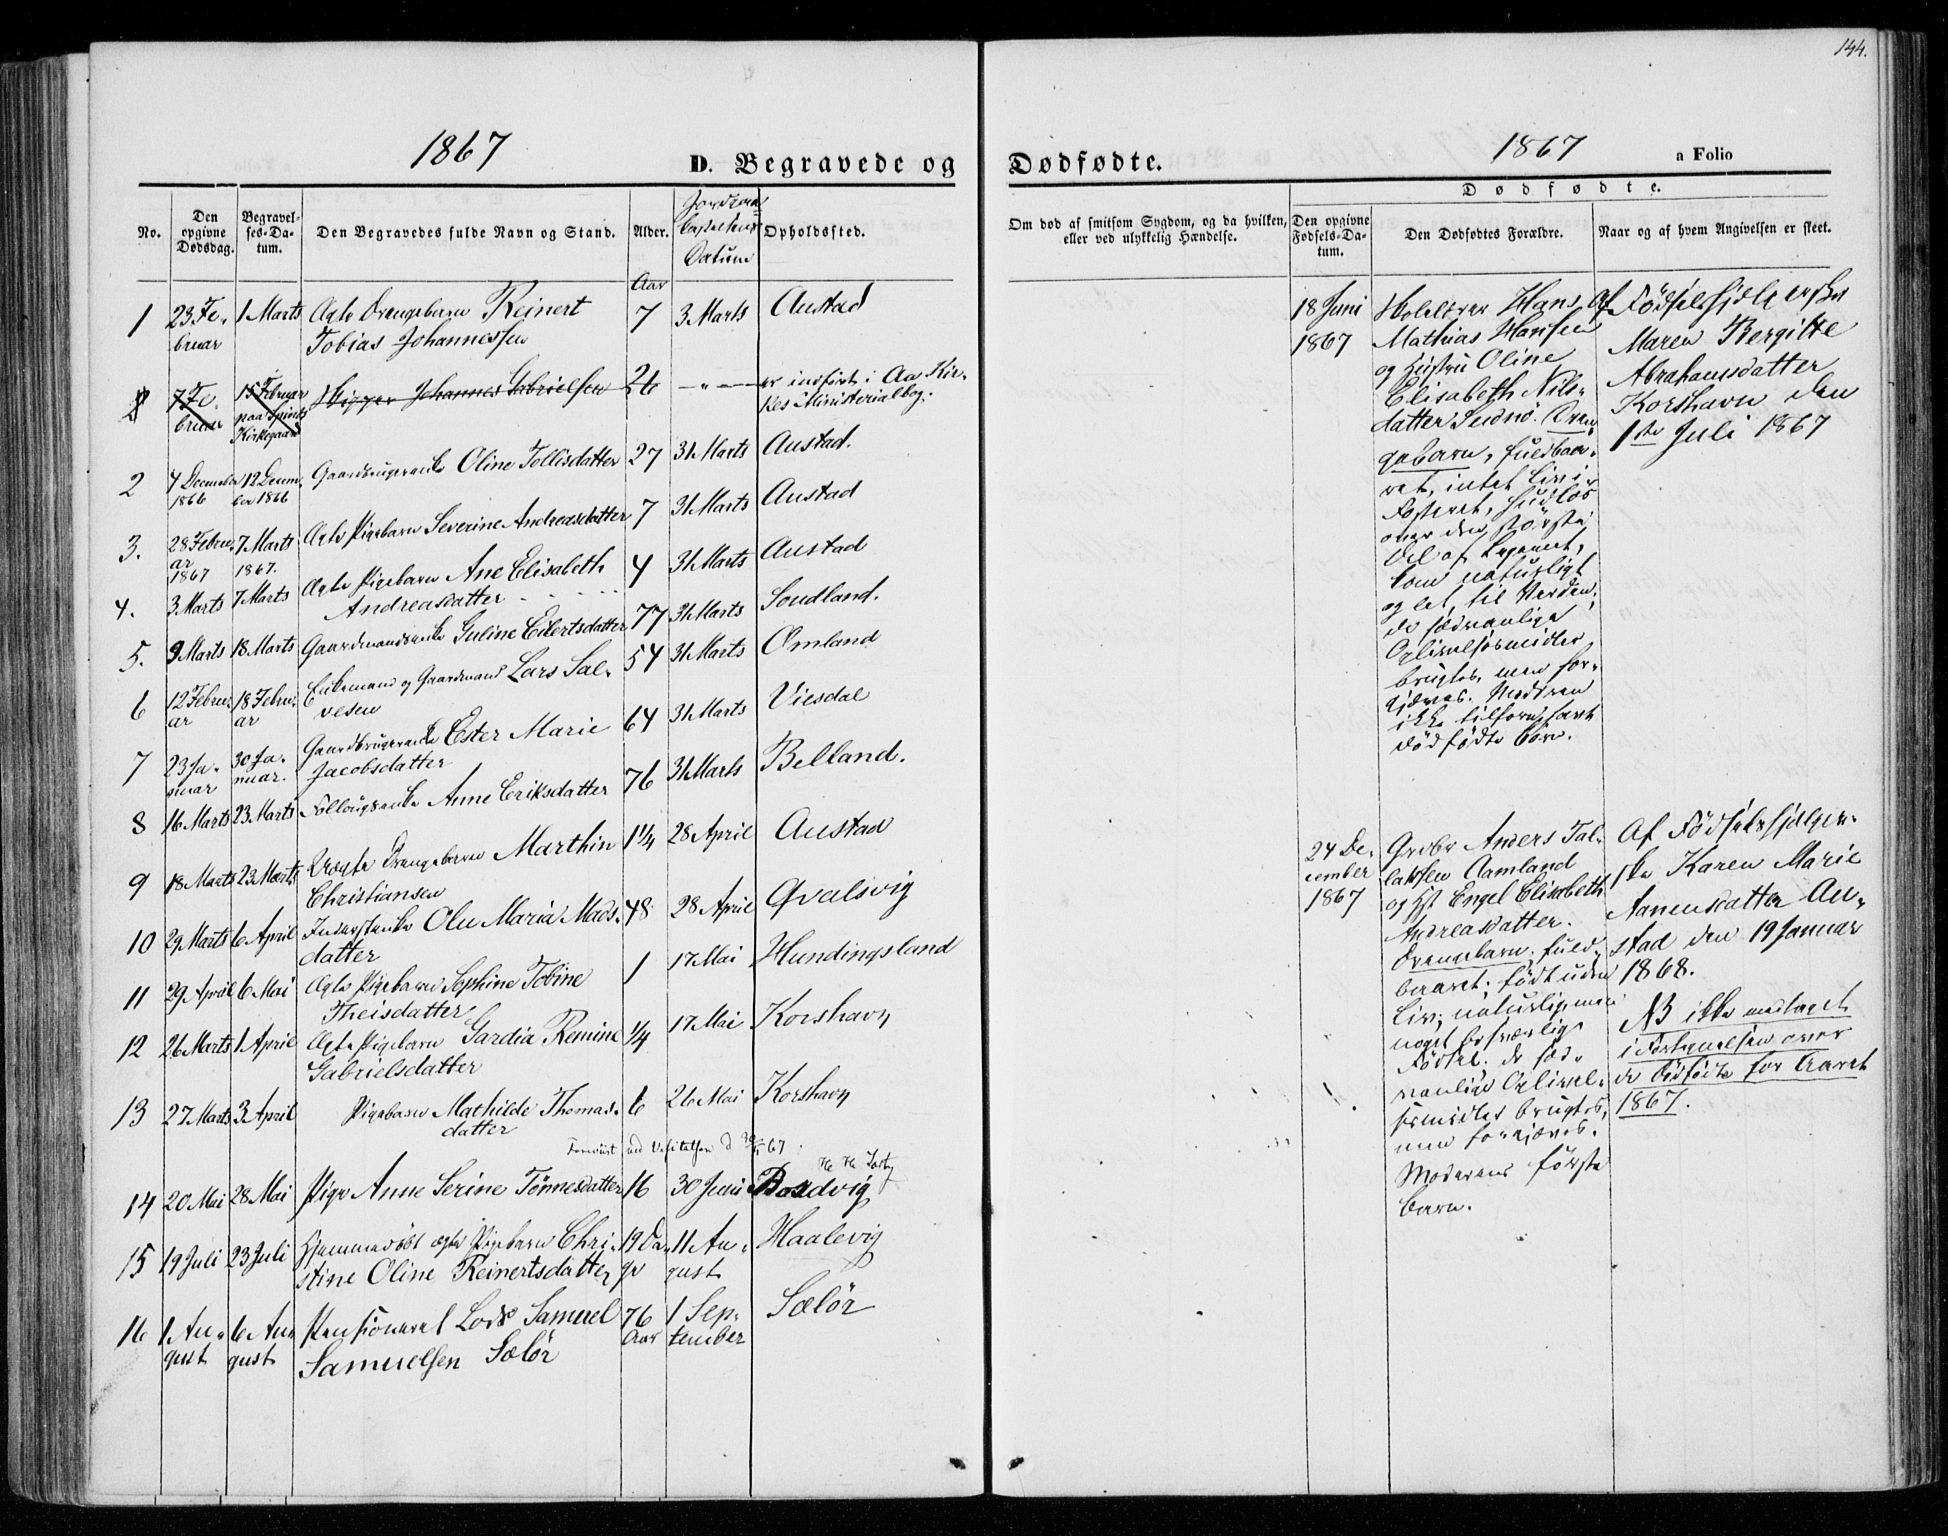 144.
1867
D. Begravede og
Dødfødte.
1867
a Folio
No.
Den opgivne Dødsdag.
Begravelses-Datum.
Den Begravedes fulde Navn og Stand.
Alder.
Datum
Opholdssted.
Om død af smitsom Sygdom, og da hvilken,
eller ved ulykkelig Hændelse.
Dødfødte.
Den opgivne Fødsels-Datum.
Den Dødfødtes Forældre.
Naar og af hvem Angivelsen er skeet.
Aar
1 23 Februar 1 Marts Ægte Drengebarn Reinert 7 3 Marts Austad
Tobias Johannessen
7 Februar 15 Februar paa Spinds Kirkegaard Johannes Gabrielsen 26 — " — er indført i Aa Kirkes Ministerialbog.
2 4 December 1866 12 December 1866 Gaardbrugerenke Oline Tollisdatter 27 31 Marts Austad.
3. 28 Februar 1867 7 Marts 1867. Ægte Pigebarn Severine Andreasdatter 7 31 Marts Austad
4. 3 Marts 7 Marts Ægte Pigebarn Ane Elisabeth 4 31 Marts Austad
Andreasdatter
5. 9 Marts 18 Marts Gaardmandsenke Guline Eilertsdatter 77 31 Marts Soudland.
6 12 Februar 18 Februar Enkemand og Gaardmand Lars Salvesen 54 31 Marts Omland
7 23 Januar 30 Januar. Gaardbrugerenke Ester Marie 64 31 Marts Viesdal
Jacobsdatter
8 16 Marts 23 Marts Føllougsenke Anne Eriksdatter 76 31 Marts Belland.
9 18 Marts 23 Marts Uægte Drengebarn Marthin 1 1/4 28 April Austad
Christiansen
10 29 Marts 6 April Inderstenke Olu Maria Mads- 48 28 April Qvalsvig
datter
11 29 April 6 Mai Ægte Pigebarn Sophine Tobine 1 17 Mai Hundingsland
Theisdatter
12 26 Marts 1 April Ægte Pigebarn Gardia Remine 1/4 17 Mai Korshavn
Gabrielsdatter
13 27 Marts 3 April Pigebarn Mathilde Thomas- 6 26 Mai Korshavn
datter
14 20 Mai 28 Mai Pige Anne Serine Tønnesdatter 16 30 Juni
15 19 Juli 23 Juli Hjemmedøbt ægte Pigebarn Chri- 19 Dage 11 August Haalevig
stine Oline Reinertsdatter
16 1 August 6 August Pensioneret Lods Samuel 76 Aar 1 September Sælør
Samuelsen Sælør
18 Juni
1867
Hans
Mathias Hansen
og Hustru Oline
Elisabeth Nils-
datter Dren-
gebarn, fuldbaa-
ret, intet Liv i
Fosteret, hudløs
over den største
Del af Legemet,
kom naturligt
og let til Verden,
de sædvanlige
Oplivelsesmidler
brugtes, men for-
gjæves. Moderen
ikke tilforn havt
dødfødte børn.
Af Fødselshjelpersken
Maren Bergitte
Abrahamsdatter
Korshavn den
1ste Juli 1867
24 De-
cember
1867
Grdbr Anders Tal-
laksen Aamland
og Hst Engel Elisabeth
Andreasdatter.
Drengebarn, fuld-
baaret; født uden
Liv; naturlig men
noget besværlig
Fødsel; de sæd-
vanlige Oplivel-
sesmidler brugtes,
men forgjæves.
Moderens første
barn.
Af Fødselshjelper-
ske Karen Marie
Aanensdatter Au-
stad den 19 Januar
1868.
NB ikke medtaget
i Fortegnelsen over
de dødfødte for Aaret
1867.